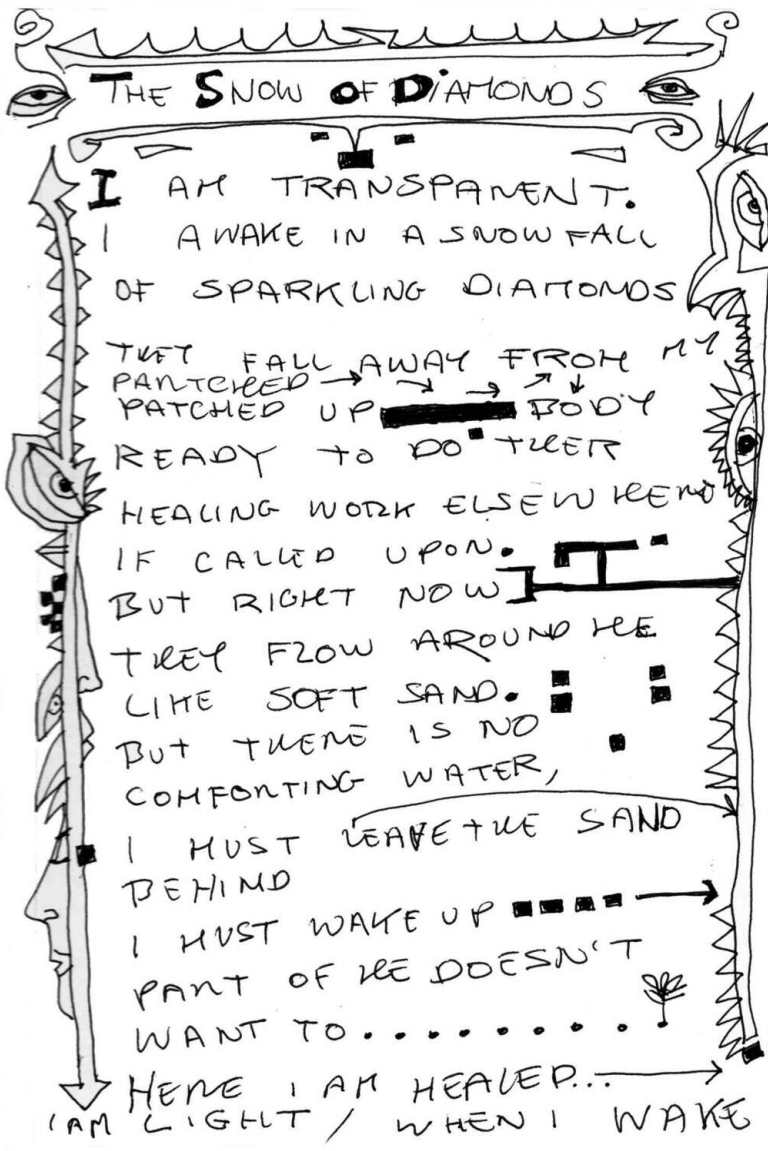 THE SNOW OF DIAMONDS
I AM TRANSPARENT.
I AWAKE IN A SNOWFALL
OF SPARKLING DIAMONDS
THEY FALL AWAY FROM MY
PANTCHED
PATCHED UP BODY
READY TO DO THER
HEALING WORK ELSEWHERE
IF CALLED UPON.
BUT RIGHT NOW
THEY FLOW AROUND ME
LIKE SOFT SAND.
BUT THERE IS NO
COMFORTING WATER,
I MUST LEAVE THE SAND
BEHIND
I MUST WAKE UP
PART OF ME DOESN'T
WANT TO.........
HERE I AM HEALED...
I AM LIGHT / WHEN I WAKE